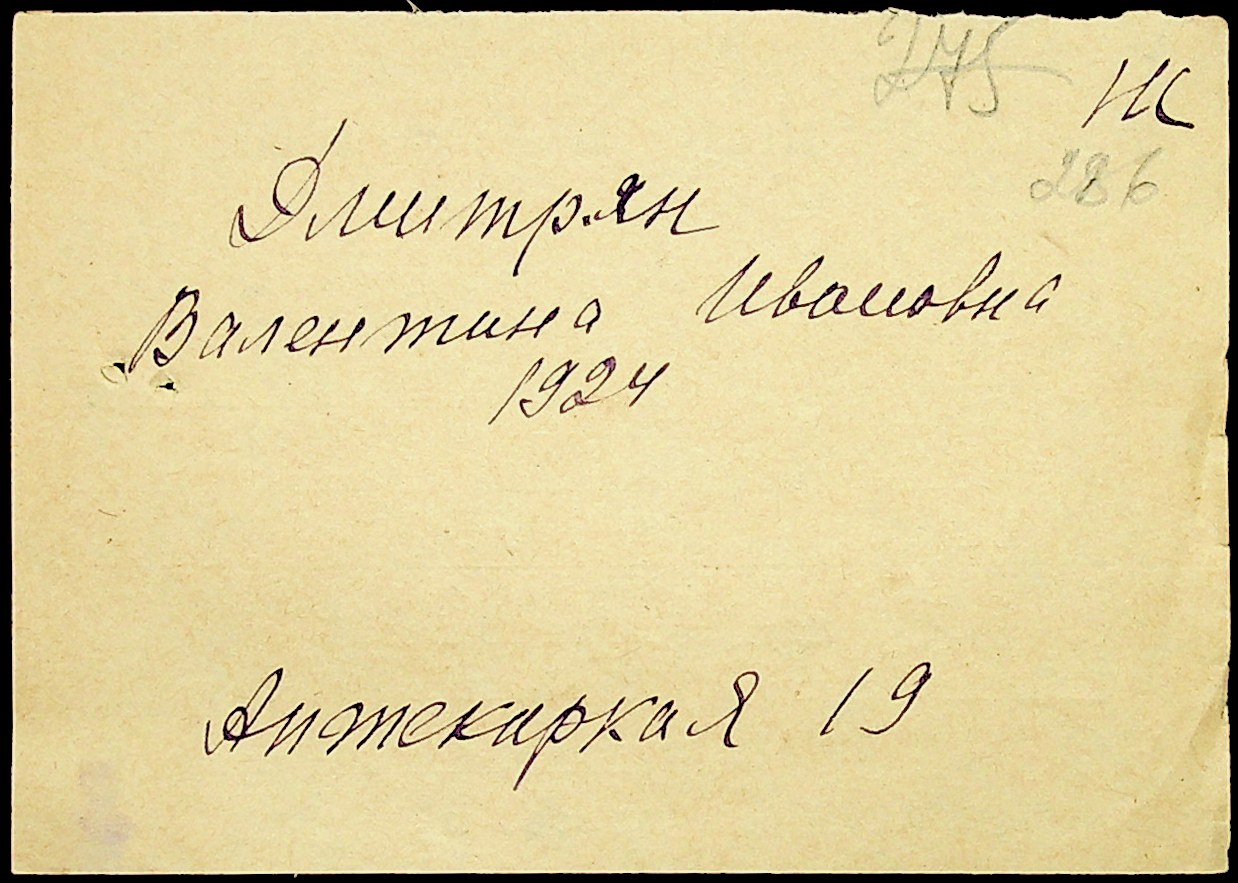 275
Ж
286
Дмитрян
Валентина Ивановна
1924
Аптекаркая 19